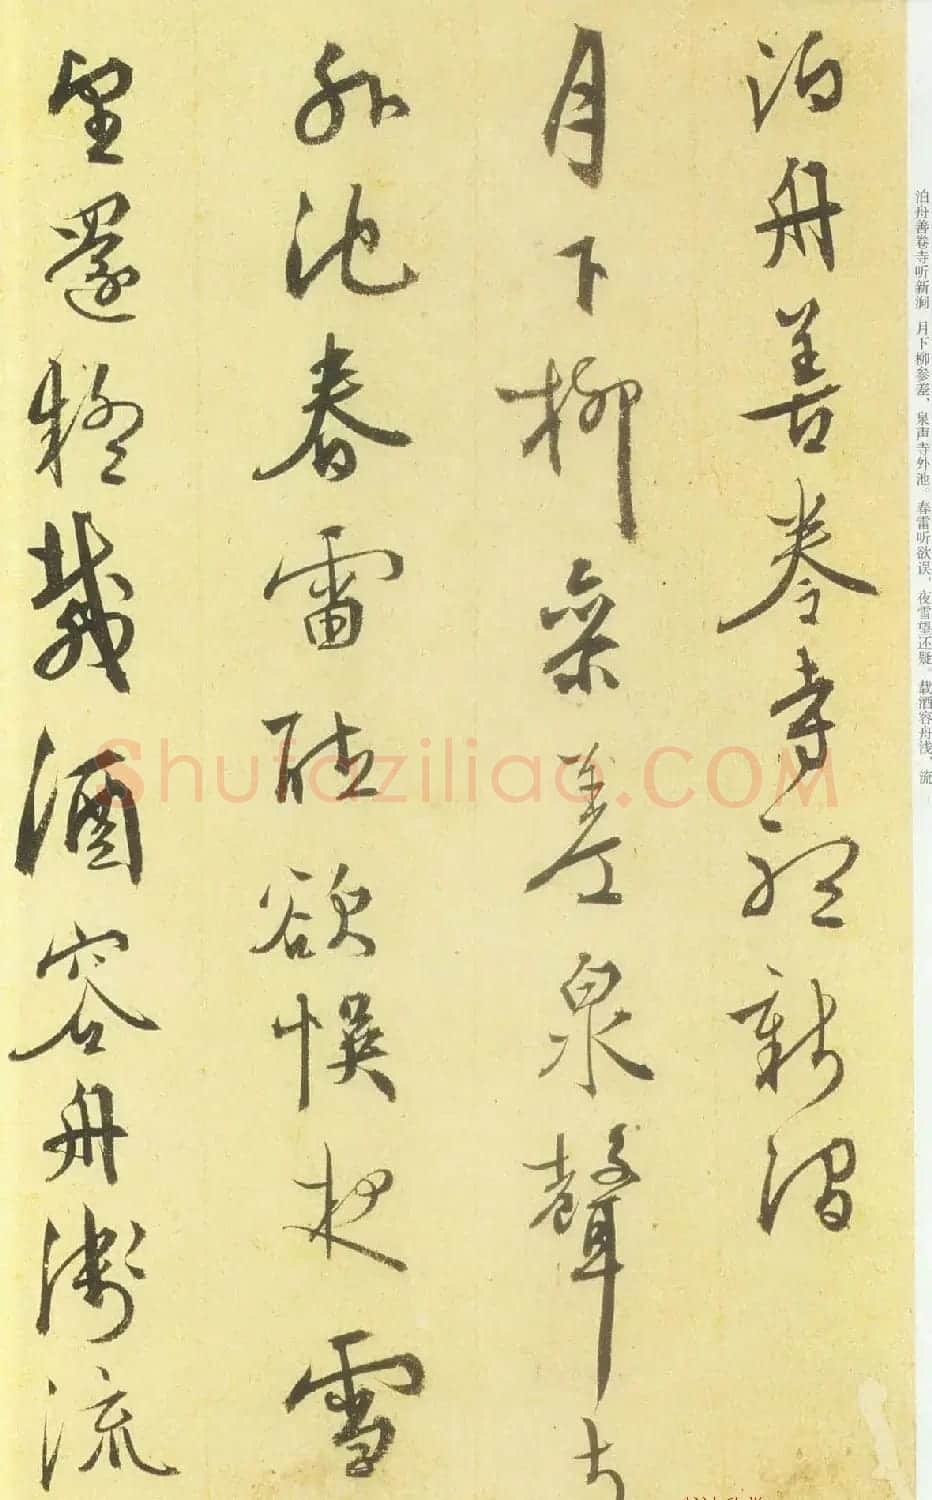 泊舟善卷寺听新涧　月下柳参差，泉声寺外池。春雷听欲误，夜雪望还疑。载酒容舟浅，流
泊舟善卷寺聽新澗
月下柳參差泉聲寺
外池春雷聽欲悞夜雪
望還疑載酒容舟淺流
Shufaziliao.COM